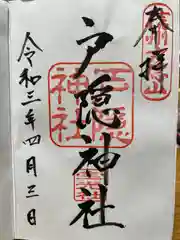 奉拝
戸隠神社
令和三年四月三日
戸隠
神社